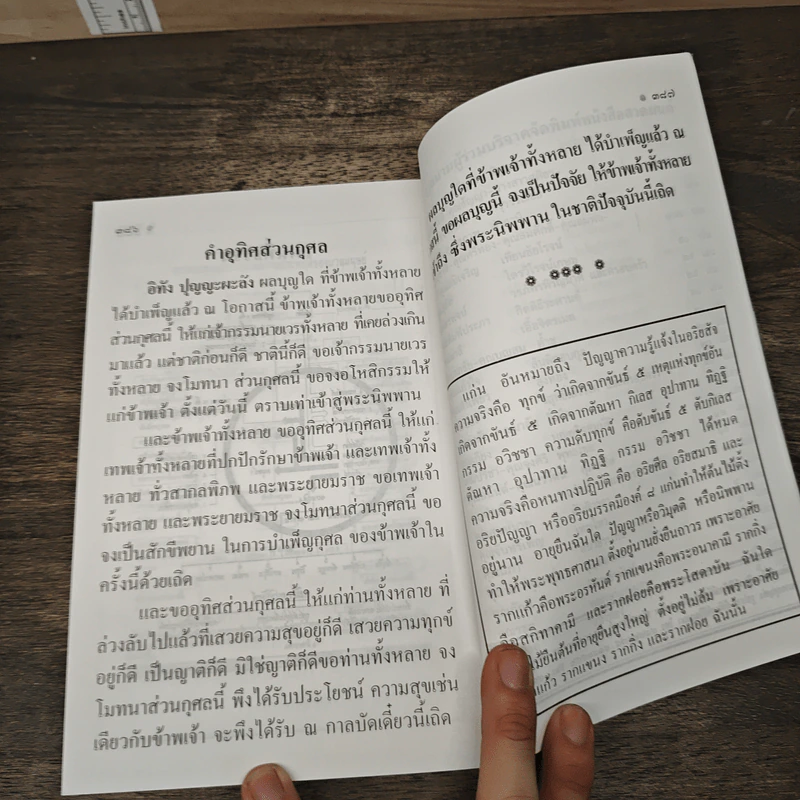 ๓๘๖
คำอุทิศส่วนกุศล
อิทัง ปุญญะผะลัง ผลบุญใด ที่ข้าพเจ้าทั้งหลาย
ได้บำเพ็ญแล้ว ณ โอกาสนี้ ข้าพเจ้าทั้งหลายขออุทิศ
ส่วนกุศลนี้ ให้แก่เจ้ากรรมนายเวรทั้งหลาย ที่เคยล่วงเกิน
มาแล้ว แต่ชาติก่อนก็ดี ชาตินี้ก็ดี ขอเจ้ากรรมนายเวร
ทั้งหลาย จงโมทนา ส่วนกุศลนี้ ขอจงอโหสิกรรมให้
แก่ข้าพเจ้า ตั้งแต่วันนี้ ตราบเท่าเข้าสู่พระนิพพาน
และข้าพเจ้าทั้งหลาย ขออุทิศส่วนกุศลนี้ ให้แก่
เทพเจ้าทั้งหลายที่ปกปักรักษาข้าพเจ้า และเทพเจ้าทั้ง
หลาย ทั่วสากลพิภพ และพระยายมราช ขอเทพเจ้า
ทั้งหลาย และพระยายมราช จงโมทนาส่วนกุศลนี้ ขอ
จงเป็นสักขีพยาน ในการบำเพ็ญกุศล ของข้าพเจ้าใน
ครั้งนี้ด้วยเถิด
และขออุทิศส่วนกุศลนี้ ให้แก่ท่านทั้งหลาย ที่
ล่วงลับไปแล้วที่เสวยความสุขอยู่ก็ดี เสวยความทุกข์
อยู่ก็ดี เป็นญาติก็ดี มิใช่ญาติก็ดีขอท่านทั้งหลาย จง
โมทนาส่วนกุศลนี้ พึงได้รับประโยชน์ ความสุขเช่น
เดียวกับข้าพเจ้า จะพึงได้รับ ณ กาลบัดเดี๋ยวนี้เถิด
๓๘๗
ผลบุญใดที่ข้าพเจ้าทั้งหลาย ได้บำเพ็ญแล้ว ณ
ขอผลบุญนี้ จงเป็นปัจจัย ให้ข้าพเจ้าทั้งหลาย
ซึ่งพระนิพพาน ในชาติปัจจุบันนี้เถิด
แก่น อันหมายถึง ปัญญาความรู้แจ้งในอริยสัจ
ความจริงคือ ทุกข์ ว่าเกิดจากขันธ์ ๕ เหตุแห่งทุกข์อัน
เกิดจากขันธ์ ๕ เกิดจากตัณหา กิเลส อุปาทาน ทิฏฐิ
กรรม อวิชชา ความดับทุกข์ คือดับขันธ์ ๕ ดับกิเลส
ตัณหา อุปาทาน ทิฏฐิ กรรม อวิชชา ได้หมด
ความจริงคือหนทางปฏิบัติ คือ อริยศีล อริยสมาธิ และ
อริยปัญญา หรืออริยมรรคมีองค์ ๘ แก่นทำให้ต้นไม้ตั้ง
อยู่นาน อายุยืนฉันใด ปัญญาหรือวิมุตติ หรือนิพพาน
ทำให้พระพุทธศาสนา ตั้งอยู่นานยั่งยืนถาวร เพราะอาศัย
รากแก้วคือพระอรหันต์ รากแขนงคือพระอนาคามี รากกิ่ง
คือสกิทาคามี และรากฝอยคือพระโสดาบัน ฉันใด
ไม้ยืนต้นที่อายุยืนสูงใหญ่ ตั้งอยู่ไม่ล้ม เพราะอาศัย
รากแขนง รากกิ่ง และรากฝอย ฉันนั้น